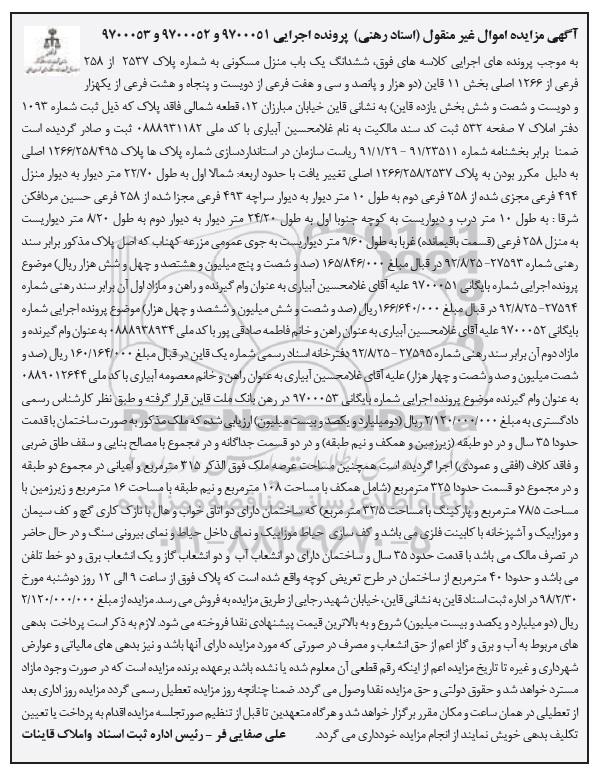 آگهی مزایده اموال غیر منقول (اسناد رهنی) پرونده اجرایی ۹۷۰۰۰۵۱ و ۹۷۰۰۰۵۲ و ۹۷۰۰۰۵۳
به موجب پرونده های اجرایی کلاسه های فوق، ششدانگ یک باب منزل مسکونی به شماره پلاک ۲۵۳۷ از ۲۵۸
فرعی از ۱۲۶۶ اصلی بخش ۱۱ قاین (دو هزار و پانصد و سی و هفت فرعی از دویست و پنجاه و هشت فرعی از یکهزار
و دویست و شصت و شش بخش یازده قاین) به نشانی قاین خیابان مبارزان ۱۲، قطعه شمالی فاقد پلاک که ذیل ثبت شماره ۱۰۹۳
دفتر املاک ۷ صفحه ۵۳۲ ثبت کد سند مالکیت به نام غلامحسین آبیاری با کد ملی ۰۸۸۸۹۳۱۱۸۲ ثبت و صادر گردیده است
ضمنا برابر بخشنامه شماره ۹۱/۲۳۵۱۱ - ۹۱/۱/۲۹ ریاست سازمان در استانداردسازی شماره پلاک ها پلاک ۱۲۶۶/۲۵۸/۴۹۵ اصلی
به دلیل مکرر بودن به پلاک ۱۲۶۶/۲۵۸/۲۵۳۷ اصلی تغییر یافت با حدود اربعه: شمالا اول به طول ۲۲/۷۰ متر دیوار به دیوار منزل
۴۹۴ فرعی مجزی شده از ۲۵۸ فرعی دوم به طول ۱۰ متر دیوار به دیوار سراچه ۴۹۳ فرعی مجزا شده از ۲۵۸ فرعی حسین مردافکن
شرقا : به طول ۱۰ متر درب و دیواریست به کوچه جنوبا اول به طول ۲۴/۲۰ متر دیوار به دیوار دوم به طول ۸/۲۰ متر دیواریست
به منزل ۲۵۸ فرعی (قسمت باقیمانده) غربا به طول ۹/۶۰ متر دیواریست به جوی عمومی مزرعه کهناب که اصل پلاک مذکور برابر سند
رهنی شماره ۲۷۵۹۳- ۹۲/۸/۲۵ در قبال مبلغ ۱۶۵/۸۴۶/۰۰۰ (صد و شصت و پنج میلیون و هشتصد و چهل و شش هزار ریال) موضوع
پرونده اجرایی شماره بایگانی ۹۷۰۰۰۵۱ علیه آقای غلامحسین آبیاری به عنوان وام گیرنده و راهن و مازاد اول آن برابر سند رهنی شماره
۲۷۵۹۴- ۹۲/۸/۲۵ در قبال مبلغ ۱۶۶/۶۴۰/۰۰۰ ریال (صد و شصت و شش میلیون و ششصد و چهل هزار) موضوع پرونده اجرایی شماره
بایگانی ۹۷۰۰۰۵۲ علیه آقای غلامحسین آبیاری به عنوان راهن و خانم فاطمه صادقی پور با کد ملی ۰۸۸۸۹۳۸۹۳۴ به عنوان وام گیرنده و
مازاد دوم آن برابر سند رهنی شماره ۲۷۵۹۵ - ۹۲/۸/۲۵ دفترخانه اسناد رسمی شماره یک قاین در قبال مبلغ ۱۶۰/۱۶۴/۰۰۰ ریال (صد و
شصت میلیون و صد و شصت و چهار هزار) علیه آقای غلامحسین آبیاری به عنوان راهن و خانم معصومه آبیاری با کد ملی ۰۸۸۹۰۱۲۶۴۴
به عنوان وام گیرنده موضوع پرونده اجرایی شماره بایگانی ۹۷۰۰۰۵۳ در رهن بانک ملت قاین قرار گرفته و طبق نظر کارشناس رسمی
دادگستری به مبلغ ۲/۱۲۰/۰۰۰/۰۰۰ ریال (دومیلیارد و یکصد و بیست میلیون) ارزیابی شده که ملک مذکور به صورت ساختمان با قدمت
حدودا ۳۵ سال و در دو طبقه (زیرزمین و همکف و نیم طبقه) و در دو قسمت جداگانه و در مجموع با مصالح بنایی و سقف طاق ضربی
و فاقد کلاف (افقی و عمودی) اجرا گردیده است همچنین مساحت عرصه ملک فوق الذکر ۳۱۵ مترمربع و اعیانی در مجموع دو طبقه
و در مجموع دو قسمت حدودا ۳۲۵ مترمربع (شامل همکف با مساحت ۱۰۸ مترمربع و نیم طبقه با مساحت ۱۶ مترمربع و زیرزمین با
مساحت ۷۸/۵ مترمربع و پارکینگ با مساحت ۳۲/۵ متر مربع) که ساختمان دارای دو اتاق خواب و هال با نازک کاری گچ و کف سیمان
و موزاییک و آشپزخانه با کابینت فلزی می باشد و کف سازی حیاط موزاییک و نمای داخل حیاط و نمای بیرونی سنگ و در حال حاضر
در تصرف مالک می باشد با قدمت حدود ۳۵ سال و ساختمان دارای دو انشعاب آب و دو انشعاب گاز و یک انشعاب برق و دو خط تلفن
می باشد و حدودا ۴۰ مترمربع از ساختمان در طرح تعریض کوچه واقع شده است که پلاک فوق از ساعت ۹ الی ۱۲ روز دوشنبه مورخ
۹۸/۲/۳۰ در اداره ثبت اسناد قاین به نشانی قاین، خیابان شهید رجایی از طریق مزایده به فروش می رسد. مزایده از مبلغ ۲/۱۲۰/۰۰۰/۰۰۰
ریال (دو میلیارد و یکصد و بیست میلیون) شروع و به بالاترین قیمت پیشنهادی نقدا فروخته می شود. لازم به ذکر است پرداخت بدهی
های مربوط به آب و برق و گاز اعم از حق انشعاب و مصرف در صورتی که مورد مزایده دارای آنها باشد و نیز بدهی های مالیاتی و عوارض
شهرداری و غیره تا تاریخ مزایده اعم از اینکه رقم قطعی آن معلوم شده یا نشده باشد برعهده برنده مزایده است که در صورت وجود مازاد
مسترد خواهد شد و حقوق دولتی و حق مزایده نقدا وصول می گردد. ضمنا چنانچه روز مزایده تعطیل رسمی گردد مزایده روز اداری بعد
از تعطیلی در همان ساعت و مکان مقرر برگزار خواهد شد و هرگاه متعهدین تا قبل از تنظیم صورتجلسه مزایده اقدام به پرداخت یا تعیین
تکلیف بدهی خویش نمایند از انجام مزایده خودداری می گردد. علی صفایی فر - رئیس اداره ثبت اسناد واملاک قاینات